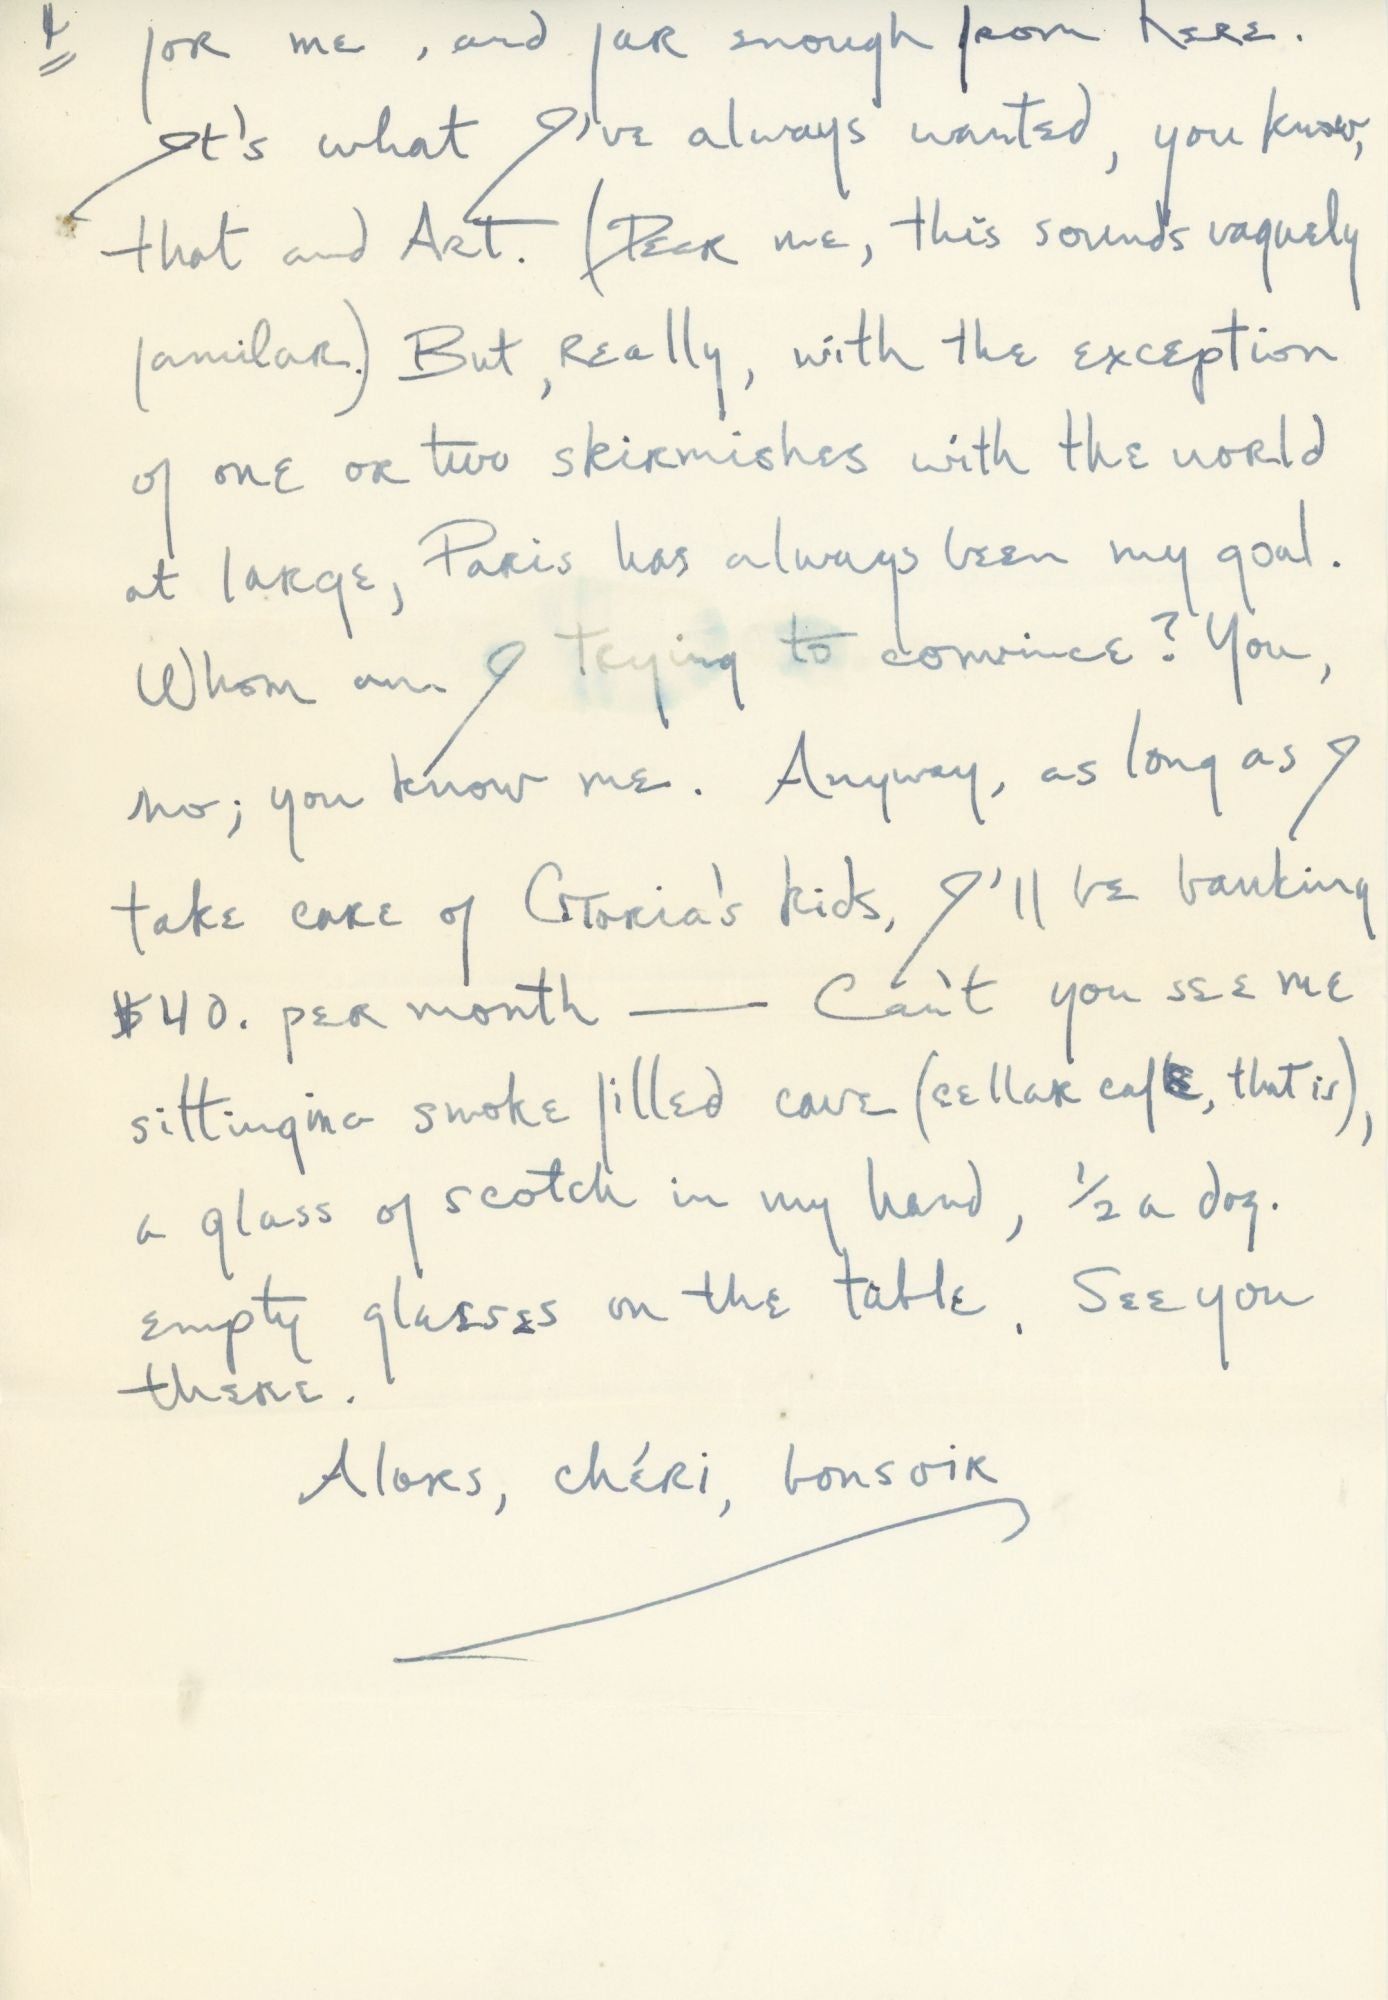 4 for me, and far enough from here.
It's what I've always wanted, you know,
that and Art. (Dear me, this sounds vaguely
familar.) But, really, with the exception
of one or two skirmishes with the world
at large, Paris has always been my goal.
Whom am I trying to convince? You,
no; you know me. Anyway, as long as I
take care of Gloria's kids, I'll be banking
$40. per month — Can't you see me
sitting in a smoke filled cave (cellar cafe, that is),
a glass of scotch in my hand, ½ a doz.
empty glasses on the table. See you
there.
Alors, chéri, bonsoir